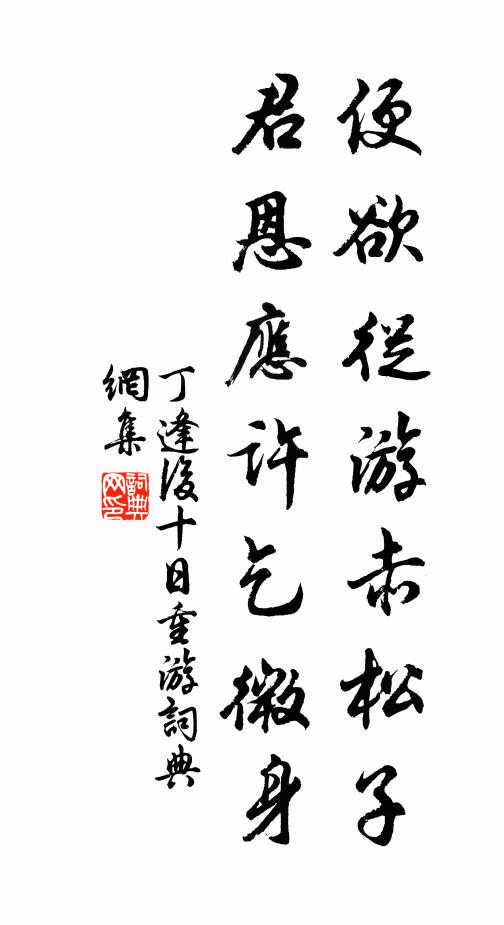 便欲從游赤松子
君恩應許乞微身
丁逢後十日重游詞典
網集
詞典
网印